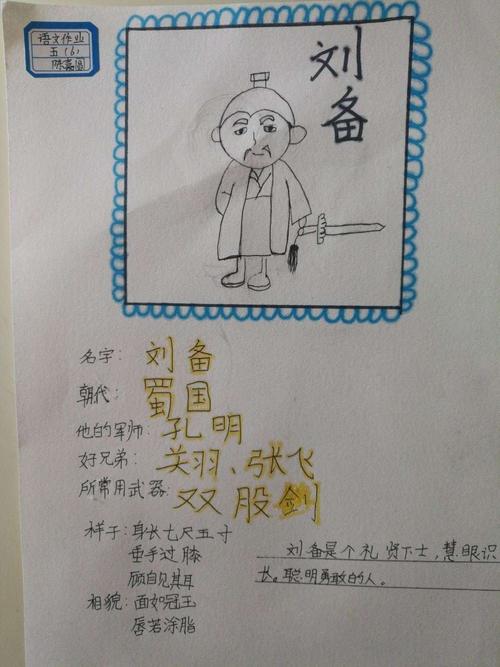 语文作业
五(6)
陈嘉圆
刘备
名字: 刘备
朝代: 蜀国
他的军师: 孔明
好兄弟: 关羽、张飞
所常用武器: 双股剑
样子: 身长七尺五寸
垂手过膝
顾自见其耳
相貌: 面如冠玉
唇若涂脂
刘备是个礼贤下士,慧眼识
长。聪明勇敢的人。